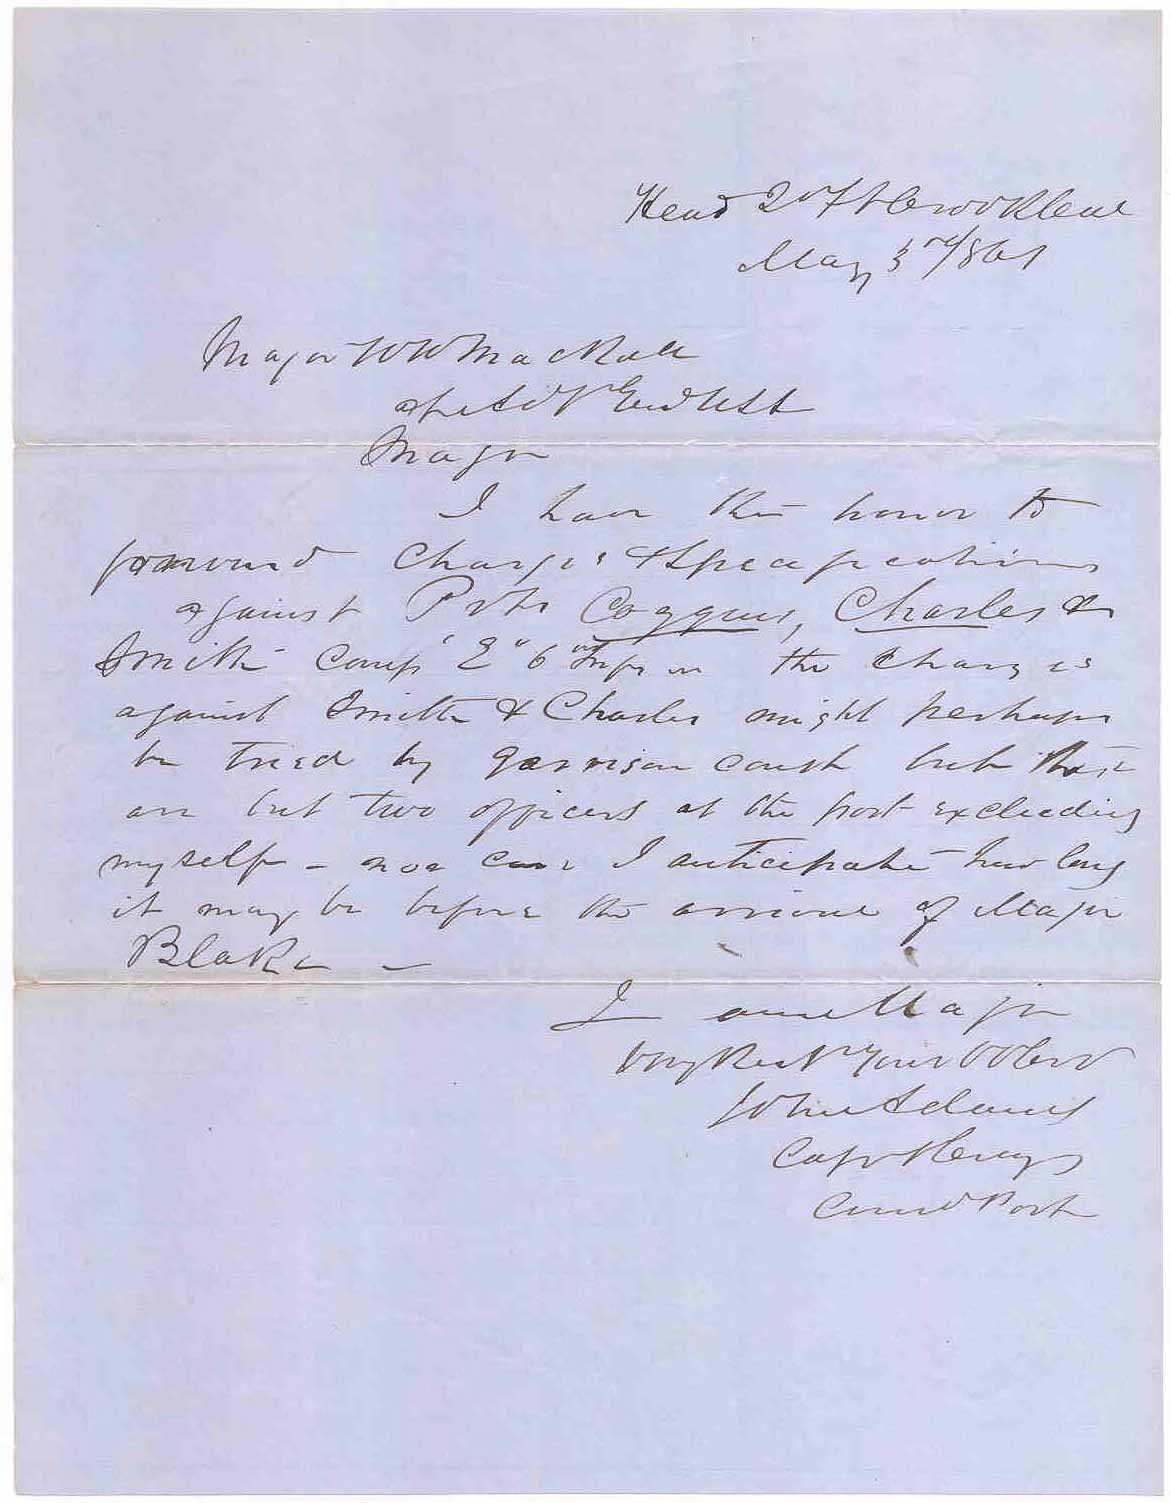 Head Qrs Ft Crook Cal
May 3rd/861
Major W W Mackall
Asst Adjt Genl USA
Major
I have the honor to
forward Charges & Specifications
against Pvts Coggins, Charles &
Smith Comp "E" 6" Infy the charges
against Smith & Charles might perhaps
be tried by garrison court but there
are but two officers at the post excluding
myself - nor can I anticipate how long
it may be before the arrival of Major
Blake -
I am Major
Very Rest Your Obt Svt
John Adams
Capt Drags
Comd Post